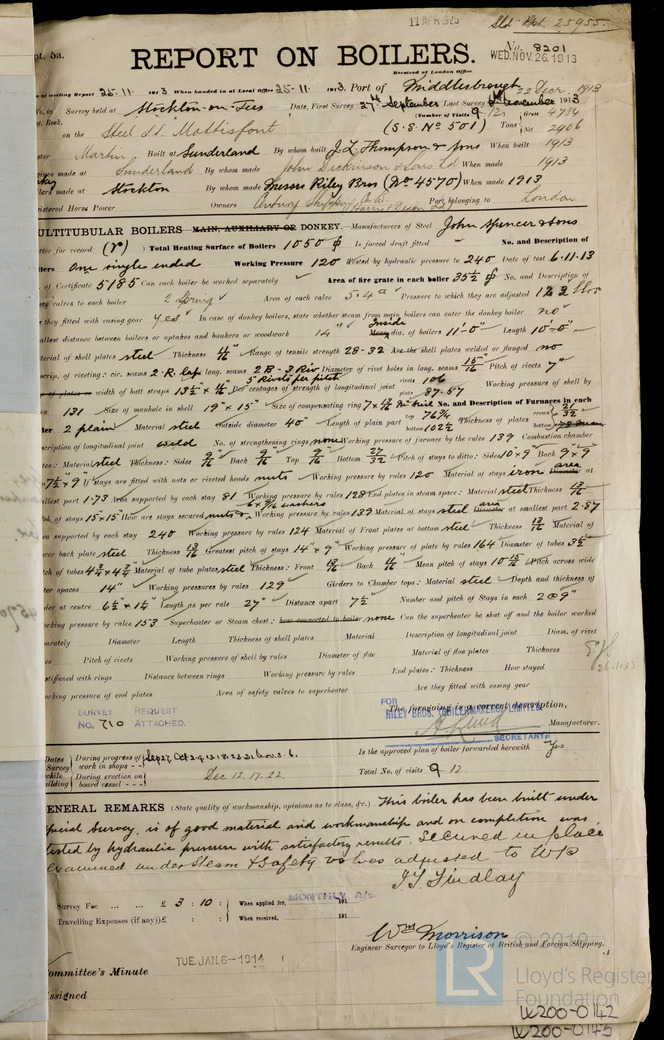 11 APR 1925
Sld. Rpt. 25955.
pt. 5a.
REPORT ON BOILERS.
No. 8201
WED. NOV. 26. 1913
Received at London Office
of writing Report 25-11- 1913 When handed in at Local Office 25-11- 1913. Port of Middlesbrough 22 Decr. 1913
No. in Survey held at Stockton-on-Tees Date, First Survey 27th September Last Survey November 1913
Reg. Book. (Number of Visits 9 12) Gross 4756
on the Steel S.S. Mattisfont (S.S. No 501) Tons Net 2906
Master Martin Built at Sunderland By whom built J.L. Thompson & Sons When built 1913
Engines made at Sunderland By whom made John Dickinson & Sons Ld When made 1913
Boilers made at Stockton By whom made Messrs Riley Bros (No 4570) When made 1913
Registered Horse Power Owners Century Shipping Co. Ld. Port belonging to London
MULTITUBULAR BOILERS MAIN, AUXILIARY OR DONKEY.—Manufacturers of Steel John Spencer & Sons
Letter for record (r) Total Heating Surface of Boilers 1050 Is forced draft fitted No. and Description of
Boilers One single ended Working Pressure 120 Tested by hydraulic pressure to 240 Date of test 6.11.13
No. of Certificate 5185 Can each boiler be worked separately Area of fire grate in each boiler 35½ No. and Description of
safety valves to each boiler 2 Spring Area of each valve 5.4 Pressure to which they are adjusted 123 lbs
Are they fitted with easing gear yes In case of donkey boilers, state whether steam from main boilers can enter the donkey boiler no
Smallest distance between boilers or uptakes and bunkers or woodwork 14" Inside dia. of boilers 11'-0" Length 10'-0"
Material of shell plates steel Thickness Range of tensile strength 28-32 Are the shell plates welded or flanged no
Descrip. of riveting: cir. seams 2 R. Lap long. seams 2 B - 3 Riv Diameter of rivet holes in long. seams 15/16 Pitch of rivets 7"
5 Rivets per pitch
Lap of plates or width of butt straps 13½ Per centages of strength of longitudinal joint rivets 106 plate 87.57 Working pressure of shell by
rules 131 Size of manhole in shell 19" x 15" Size of compensating ring No. and Description of Furnaces in each
boiler 2 plain Material steel Outside diameter 40" Length of plain part top 76¾ bottom 102½ Thickness of plates crown 21/32 bottom
Description of longitudinal joint weld No. of strengthening rings none Working pressure of furnace by the rules 139 Combustion chamber
plates: Material steel Thickness: Sides 9/16 Back 9/16 Top 9/16 Bottom 27/32 Pitch of stays to ditto: Sides 10 x 9 Back 9 x 9
Top 7½ x 9 If stays are fitted with nuts or riveted heads nuts Working pressure by rules 120 Material of stays iron area at
smallest part 1.73 Area supported by each stay 81 Working pressure by rules 128 End plates in steam space: Material steel Thickness 13/16
Pitch of stays 15 x 15 How are stays secured nuts & washers Working pressure by rules 139 Material of stays steel area at smallest part 2.87
Area supported by each stay 240 Working pressure by rules 124 Material of Front plates at bottom steel Thickness 13/16 Material of
Lower back plate steel Thickness 13/16 Greatest pitch of stays 14 x 9 Working pressure of plate by rules 164 Diameter of tubes 3½
Pitch of tubes 4¾ x 4¾ Material of tube plates steel Thickness: Front 13/16 Back 11/16 Mean pitch of stays 10 15/16 Pitch across wide
water spaces 14" Working pressures by rules 129 Girders to Chamber tops: Material steel Depth and thickness of
girder at centre 6½ x 1½ Length as per rule 27" Distance apart 7½ Number and pitch of Stays in each 2 @ 9"
Working pressure by rules 153 Superheater or Steam chest; how connected to boiler none Can the superheater be shut off and the boiler worked
separately Diameter Length Thickness of shell plates Material Description of longitudinal joint Diam. of rivet
holes Pitch of rivets Working pressure of shell by rules Diameter of flue Material of flue plates Thickness
If stiffened with rings Distance between rings Working pressure by rules End plates: Thickness How stayed
Working pressure of end plates Area of safety valves to superheater Are they fitted with easing gear
SURVEY REQUEST
NO. 710 ATTACHED.
The foregoing is a correct description,
FOR RILEY BROS. (BOILERMAKERS) LIMITED
Manufacturer.
SECRETARY
Dates of Survey while building
During progress of work in shops - - Sep 27. Oct 2.9.13.18.23.31. Nov. 3.6.
During erection on board vessel - - - Dec. 12. 17. 22.
Is the approved plan of boiler forwarded herewith Yes
Total No. of visits 9 12
GENERAL REMARKS (State quality of workmanship, opinions as to class, &c.) This boiler has been built under
special Survey, is of good material and workmanship and on completion was
tested by hydraulic pressure with satisfactory results. Secured in place
examined under Steam & Safety valves adjusted to WP
J.T. Findlay
Survey Fee ... ... £ 3 : 10 : When applied for, 191
MONTHLY A/C
Travelling Expenses (if any) £ : : When received, 191
Wm Morrison
Engineer Surveyor to Lloyd's Register of British and Foreign Shipping.
Committee's Minute TUE. JAN. 6-1914
Assigned
© 2019
LR
Lloyd's Register
Foundation
W200-0142
W200-0145